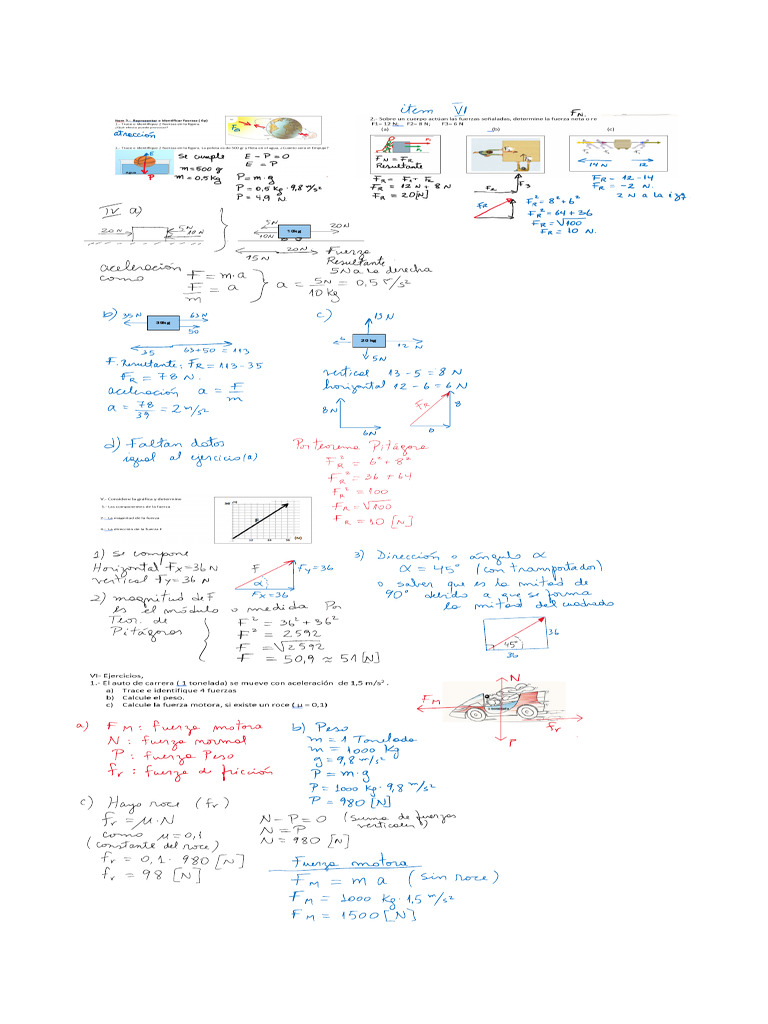 item VI
Item 3.- Representar e identificar fuerzas ( 6p)
1.- Trace e identifique 2 fuerzas en la figura.
¿Qué efecto puede provocar?
atracción
1.- Trace e identifique 2 fuerzas en la figura. La pelota es de 500 gr y flota en el agua. ¿Cuánto vale el Empuje?
E
Agua
P
Se cumple
m=500 g
m=0,5kg
E - P = 0
E = P
P = m·g
P = 0,5 kg · 9,8 m/s²
P = 4,9 N
FN =
2.- Sobre un cuerpo actúan las fuerzas señaladas, determine la fuerza neta o re
F1= 12 N; F2= 8 N; F3= 6 N
(a)
(b)
(c)
FN = FR
Resultante
FR = F1 + F2
FR = 12 N + 8 N
FR = 20[N]
F2
F3
FR
FR² = 8² + 6²
FR² = 64 + 36
FR = √100
FR = 10 N.
14 N
12 N
FR = 12 - 14
FR = -2 N.
2 N a la izq
IV a)
20 N
5N
10 N
5N
10N
10kg
20 N
15 N
20 N
Fuerza
Resultante
5N a la derecha
aceleración
como
F = m·a
F/m = a
a = 5N/10 kg = 0,5 m/s²
b)
35 N
39kg
63 N
50
35
63+50 = 113
F. Resultante: FR = 113 - 35
FR = 78 N.
aceleración a = F/m
a = 78/39 = 2 m/s²
c)
13 N
6
20 kg
12 N
5N
vertical 13 - 5 = 8 N
horizontal 12 - 6 = 6 N
8N
6N
FR
8
6
d) Faltan datos
igual al ejercicio (a)
Por teorema Pitágora
FR² = 6² + 8²
FR² = 36 + 64
FR² = 100
FR = √100
FR = 10 [N]
V.- Considere la gráfica y determine:
1.- Los componentes de la fuerza
2.- La magnitud de la fuerza
3.- La dirección de la fuerza F
F
(N)
1) Se compone
Horizontal Fx = 36 N
vertical Fy = 36 N
F
Fy = 36
α
Fx = 36
2) magnitud de F
es el módulo o medida Por
Teor. de
Pitágoras
F² = 36² + 36²
F² = 2592
F = √2592
F = 50,9 ≈ 51 [N]
3) Dirección o ángulo α
α = 45° (con transportador)
o saber que es la mitad de
90° debido a que se forma
la mitad del cuadrado
36
45°
36
VI- Ejercicios,
1.- El auto de carrera ( 1 tonelada) se mueve con aceleración de 1,5 m/s² .
a) Trace e identifique 4 fuerzas
b) Calcule el peso.
c) Calcule la fuerza motora, si existe un roce ( μ = 0,1)
N
FM
fr
P
a) FM : fuerza motora
N : fuerza normal
P : fuerza Peso
fr : fuerza de fricción
b) Peso
m = 1 Tonelada
m = 1000 kg
g = 9,8 m/s²
P = m·g
P = 1000 kg · 9,8 m/s²
P = 980 [N]
c) Hayo roce (fr)
fr = μ·N
como μ = 0,1
(constante del roce)
fr = 0,1 · 980 [N]
fr = 98 [N]
N - P = 0 (Suma de fuerzas
verticales)
N = P
N = 980 [N]
Fuerza motora
FM = m a (sin roce)
FM = 1000 kg · 1,5 m/s²
FM = 1500 [N]